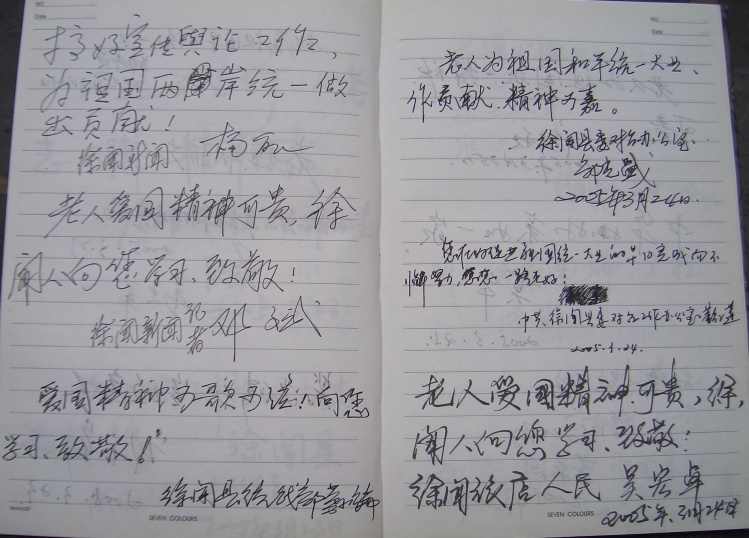 NO.
Date
搞好宣传舆论工作,
为祖国两岸统一做
出贡献!
徐闻新闻 杨
老人爱国精神可贵,徐
闻人向您学习、致敬!
徐闻新闻记者 邓 斌
爱国精神可歌可泣!向您
学习、致敬!
徐闻县统战部
SEVEN COLOURS
NO.
Date
老人为祖国和平统一大业、
作贡献.精神可嘉。
徐闻县委对台办公室.
2005年3月24日.
为促进祖国统一大业的早日完成而不
懈努力,您 一路走好!
中共徐闻县委对台工作办公室
2005.3.24.
老人爱国精神可贵,徐,
闻人向您学习、致敬!
徐闻 店人民 吴宏卓
2005年.3月24日
SEVEN COLOURS